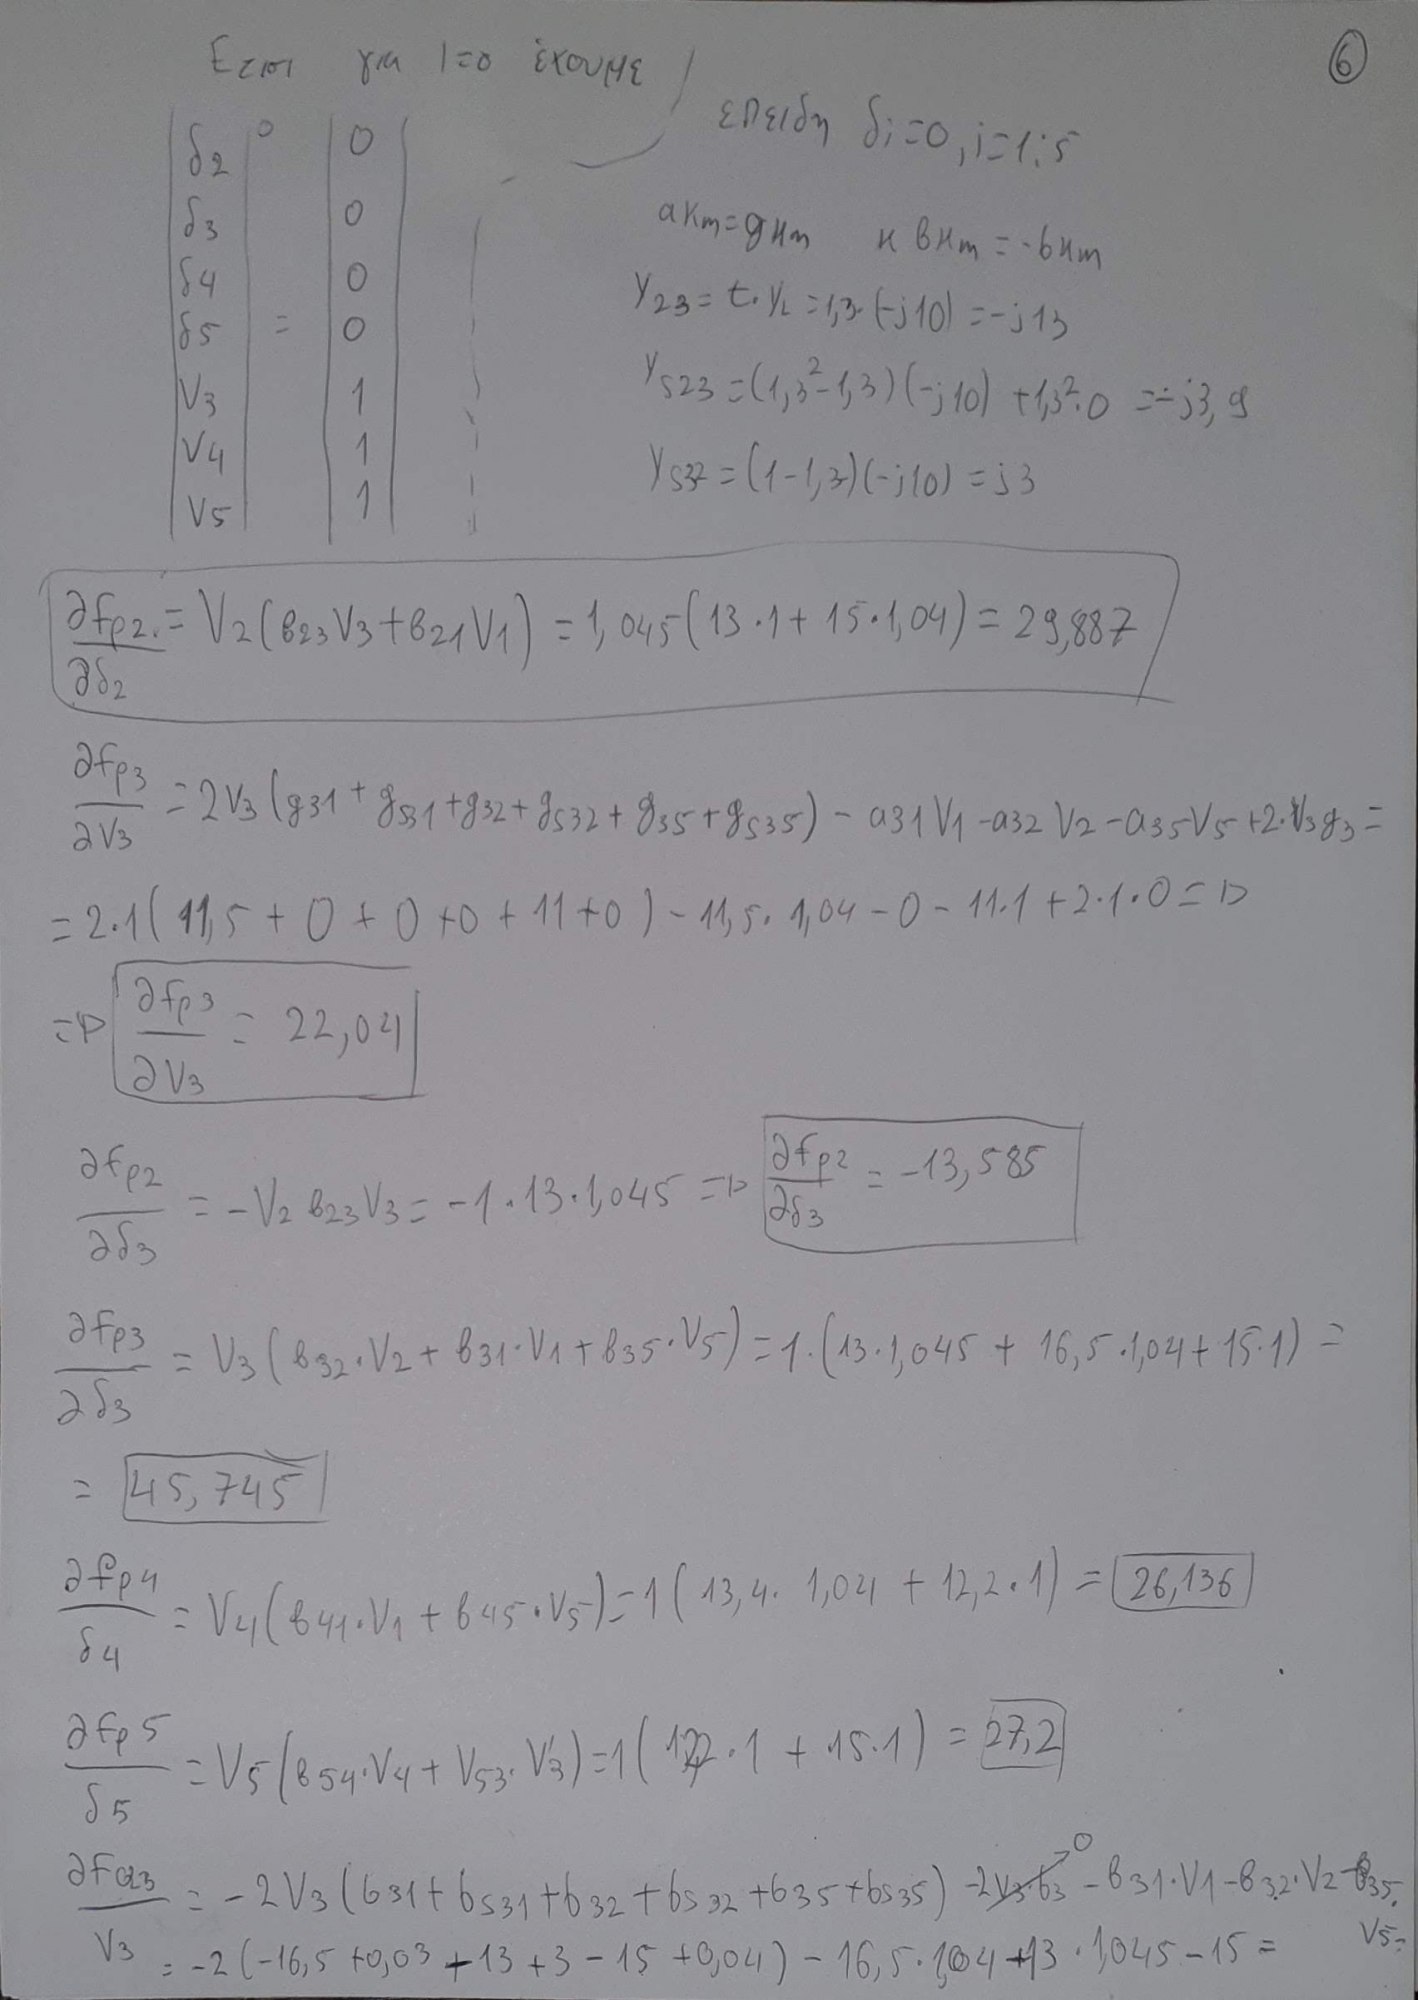 Ετσι για l=0 έχουμε
6
επειδη δi=0, i=1:5
|δ2|⁰ |0|
|δ3| |0|
|δ4| |0|
|δ5| = |0|
|V3| |1|
|V4| |1|
|V5| |1|
aκm=gκm κ βκm = -bκm
Y23 = t·YL = 1,3·(-j10) = -j13
Ys23 = (1,3²-1,3)(-j10) + 1,3²·0 = -j3,9
Ys32 = (1-1,3)(-j10) = j3
∂fp2/∂δ2 = V2(β23V3+β21V1) = 1,045(13·1+15·1,04) = 29,887
∂fp3/∂V3 = 2V3(g31+gs31+g32+gs32+g35+gs35) - a31V1 - a32V2 - a35V5 + 2·V3g3 =
= 2·1(11,5+0+0+0+11+0) - 11,5·1,04 - 0 - 11·1 + 2·1·0 =>
=> ∂fp3/∂V3 = 22,04
∂fp2/∂δ3 = -V2 β23 V3 = -1·13·1,045 => ∂fp2/∂δ3 = -13,585
∂fp3/∂δ3 = V3(β32·V2+β31·V1+β35·V5) = 1·(13·1,045 + 16,5·1,04 + 15·1) =
= 45,745
∂fp4/δ4 = V4(β41·V1+β45·V5) = 1(13,4·1,04 + 12,2·1) = 26,136
∂fp5/δ5 = V5(β54·V4+V53·V3) = 1(12,2·1 + 15·1) = 27,2
∂FQ3/V3 = -2V3(b31+bs31+b32+bs32+b35+bs35) - 2V3·b3 0 - β31·V1 - β32·V2 - β35·V5 =
= -2(-16,5+0,03+13+3-15+0,04) - 16,5·1,04 +13·1,045 - 15 =